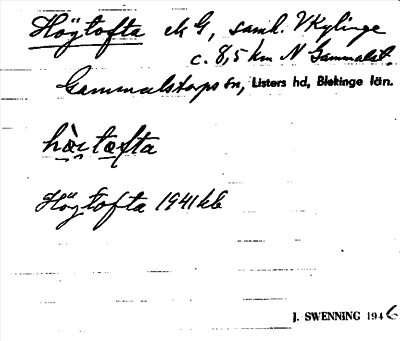 Högtofta ek G, saml. V Kylinge
c. 8,5 km N Gammalst.
Gammalstorps sn, Listers hd, Blekinge län.
hö̀gtofta
Högtofta 1941 kb
J. SWENNING 1946